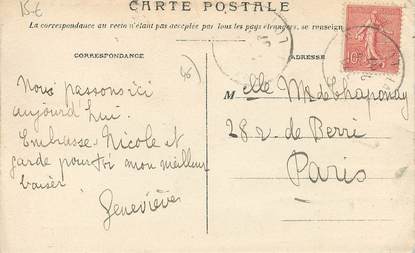 15€
CARTE POSTALE
La correspondance au recto n'étant pas acceptée par tous les pays étrangers, se renseign
CORRESPONDANCE
ADRESSE
Nous passons ici
aujourd'hui.
Embrasse Nicole et
garde pour toi mon meilleur
baiser.
Geneviève
Melle M. de Chaponay
28 r. de Berri
Paris